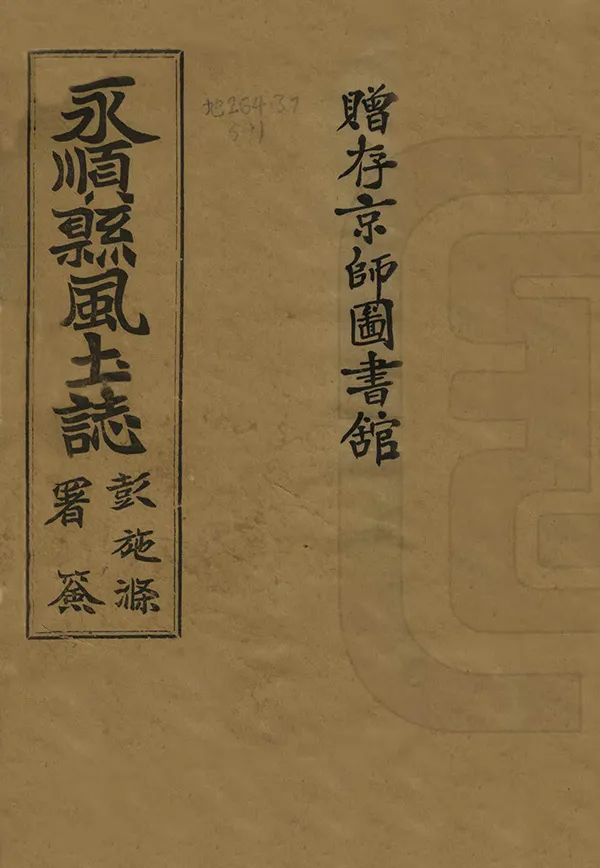 贈存京師圖書舘
地264·37
5·1
永順縣風土誌
彭施滌
署簽